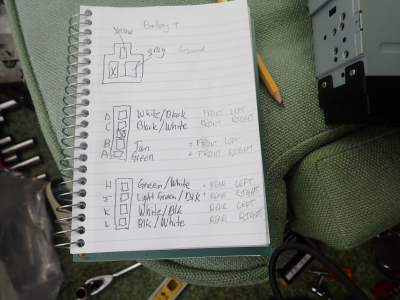 Yellow Battery +
grey Ground
X
D White/Black FRONT LEFT
C Black/White FRONT RIGHT
B Tan + FRONT LEFT
A Green + FRONT RIGHT
H Green/White + REAR LEFT
J Light Green/Blk + REAR RIGHT
K White/Blk REAR LEFT
L Blk/White REAR RIGHT